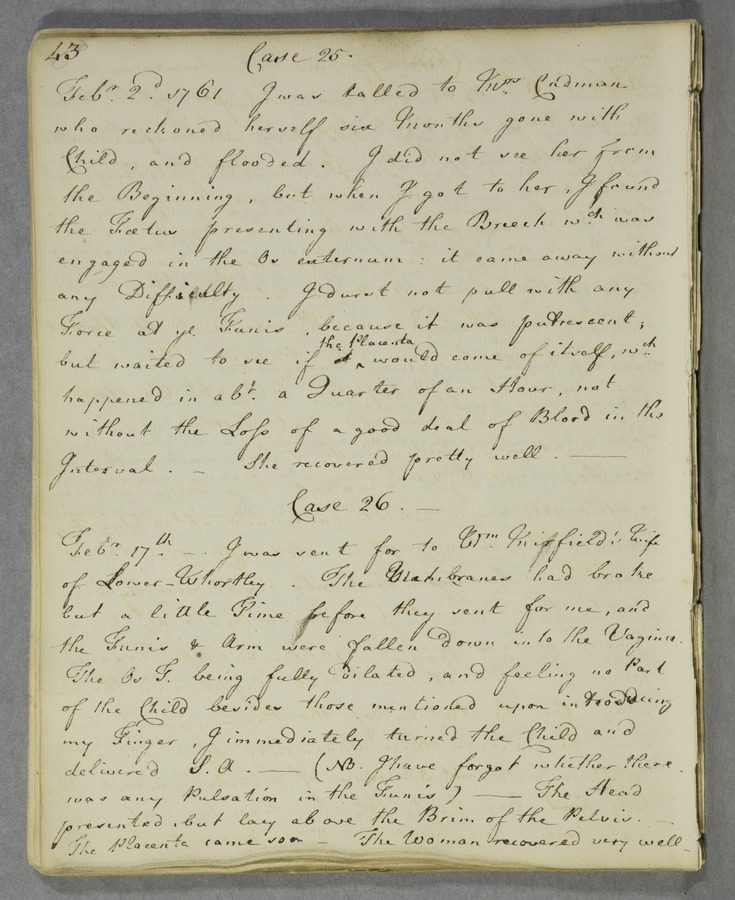 43 Case 25.
Febr. 2d. 1761 I was called to Mrs. Cadman
who reckoned herself six Months gone with
Child, and flooded. I did not see her from
the Beginning, but when I got to her, I found
the Fœtus presenting with the Breech wch. was
engaged in the Os externum: it came away without
any Difficulty. I durst not pull with any
Force at ye. Funis, because it was putrescent;
the Placenta
but waited to see if it ^ would come of itself, wch.
happened in abt. a Quarter of an Hour, not
without the Loss of a good deal of Blood in the
Interval. — She recovered pretty well. —
Case 26. —
Febr. 17th — I was sent for to Wm. Mirfield's Wife
of Lower-Whortley. The Membranes had broke
but a little Time before they sent for me, and
the Funis & Arm were fallen down into the Vagina.
The Os T. being fully dilated, and feeling no Part
of the Child besides those mentioned upon introducing
my Finger, I immediately turned the Child and
delivered S. A. — (NB. I have forgot whether there
was any Pulsation in the Funis) — The Head
presented, but lay above the Brim of the Pelvis. —
The Placenta came soon — The Woman recovered very well —